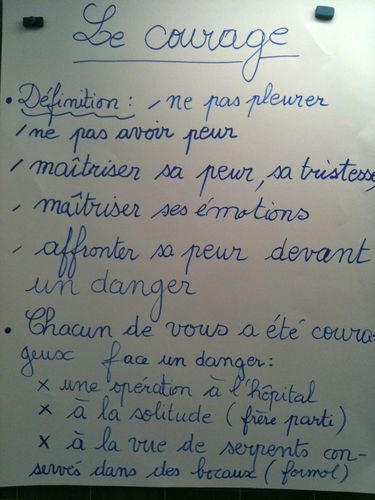 Le courage
• Définition : / ne pas pleurer
/ ne pas avoir peur
/ maîtriser sa peur, sa tristesse
/ maîtriser ses émotions
/ affronter sa peur devant
un danger
• Chacun de vous a été coura-
geux face un danger :
x une opération à l'hôpital
x à la solitude ( frère parti )
x à la vue de serpents con-
servés dans des bocaux ( formol )